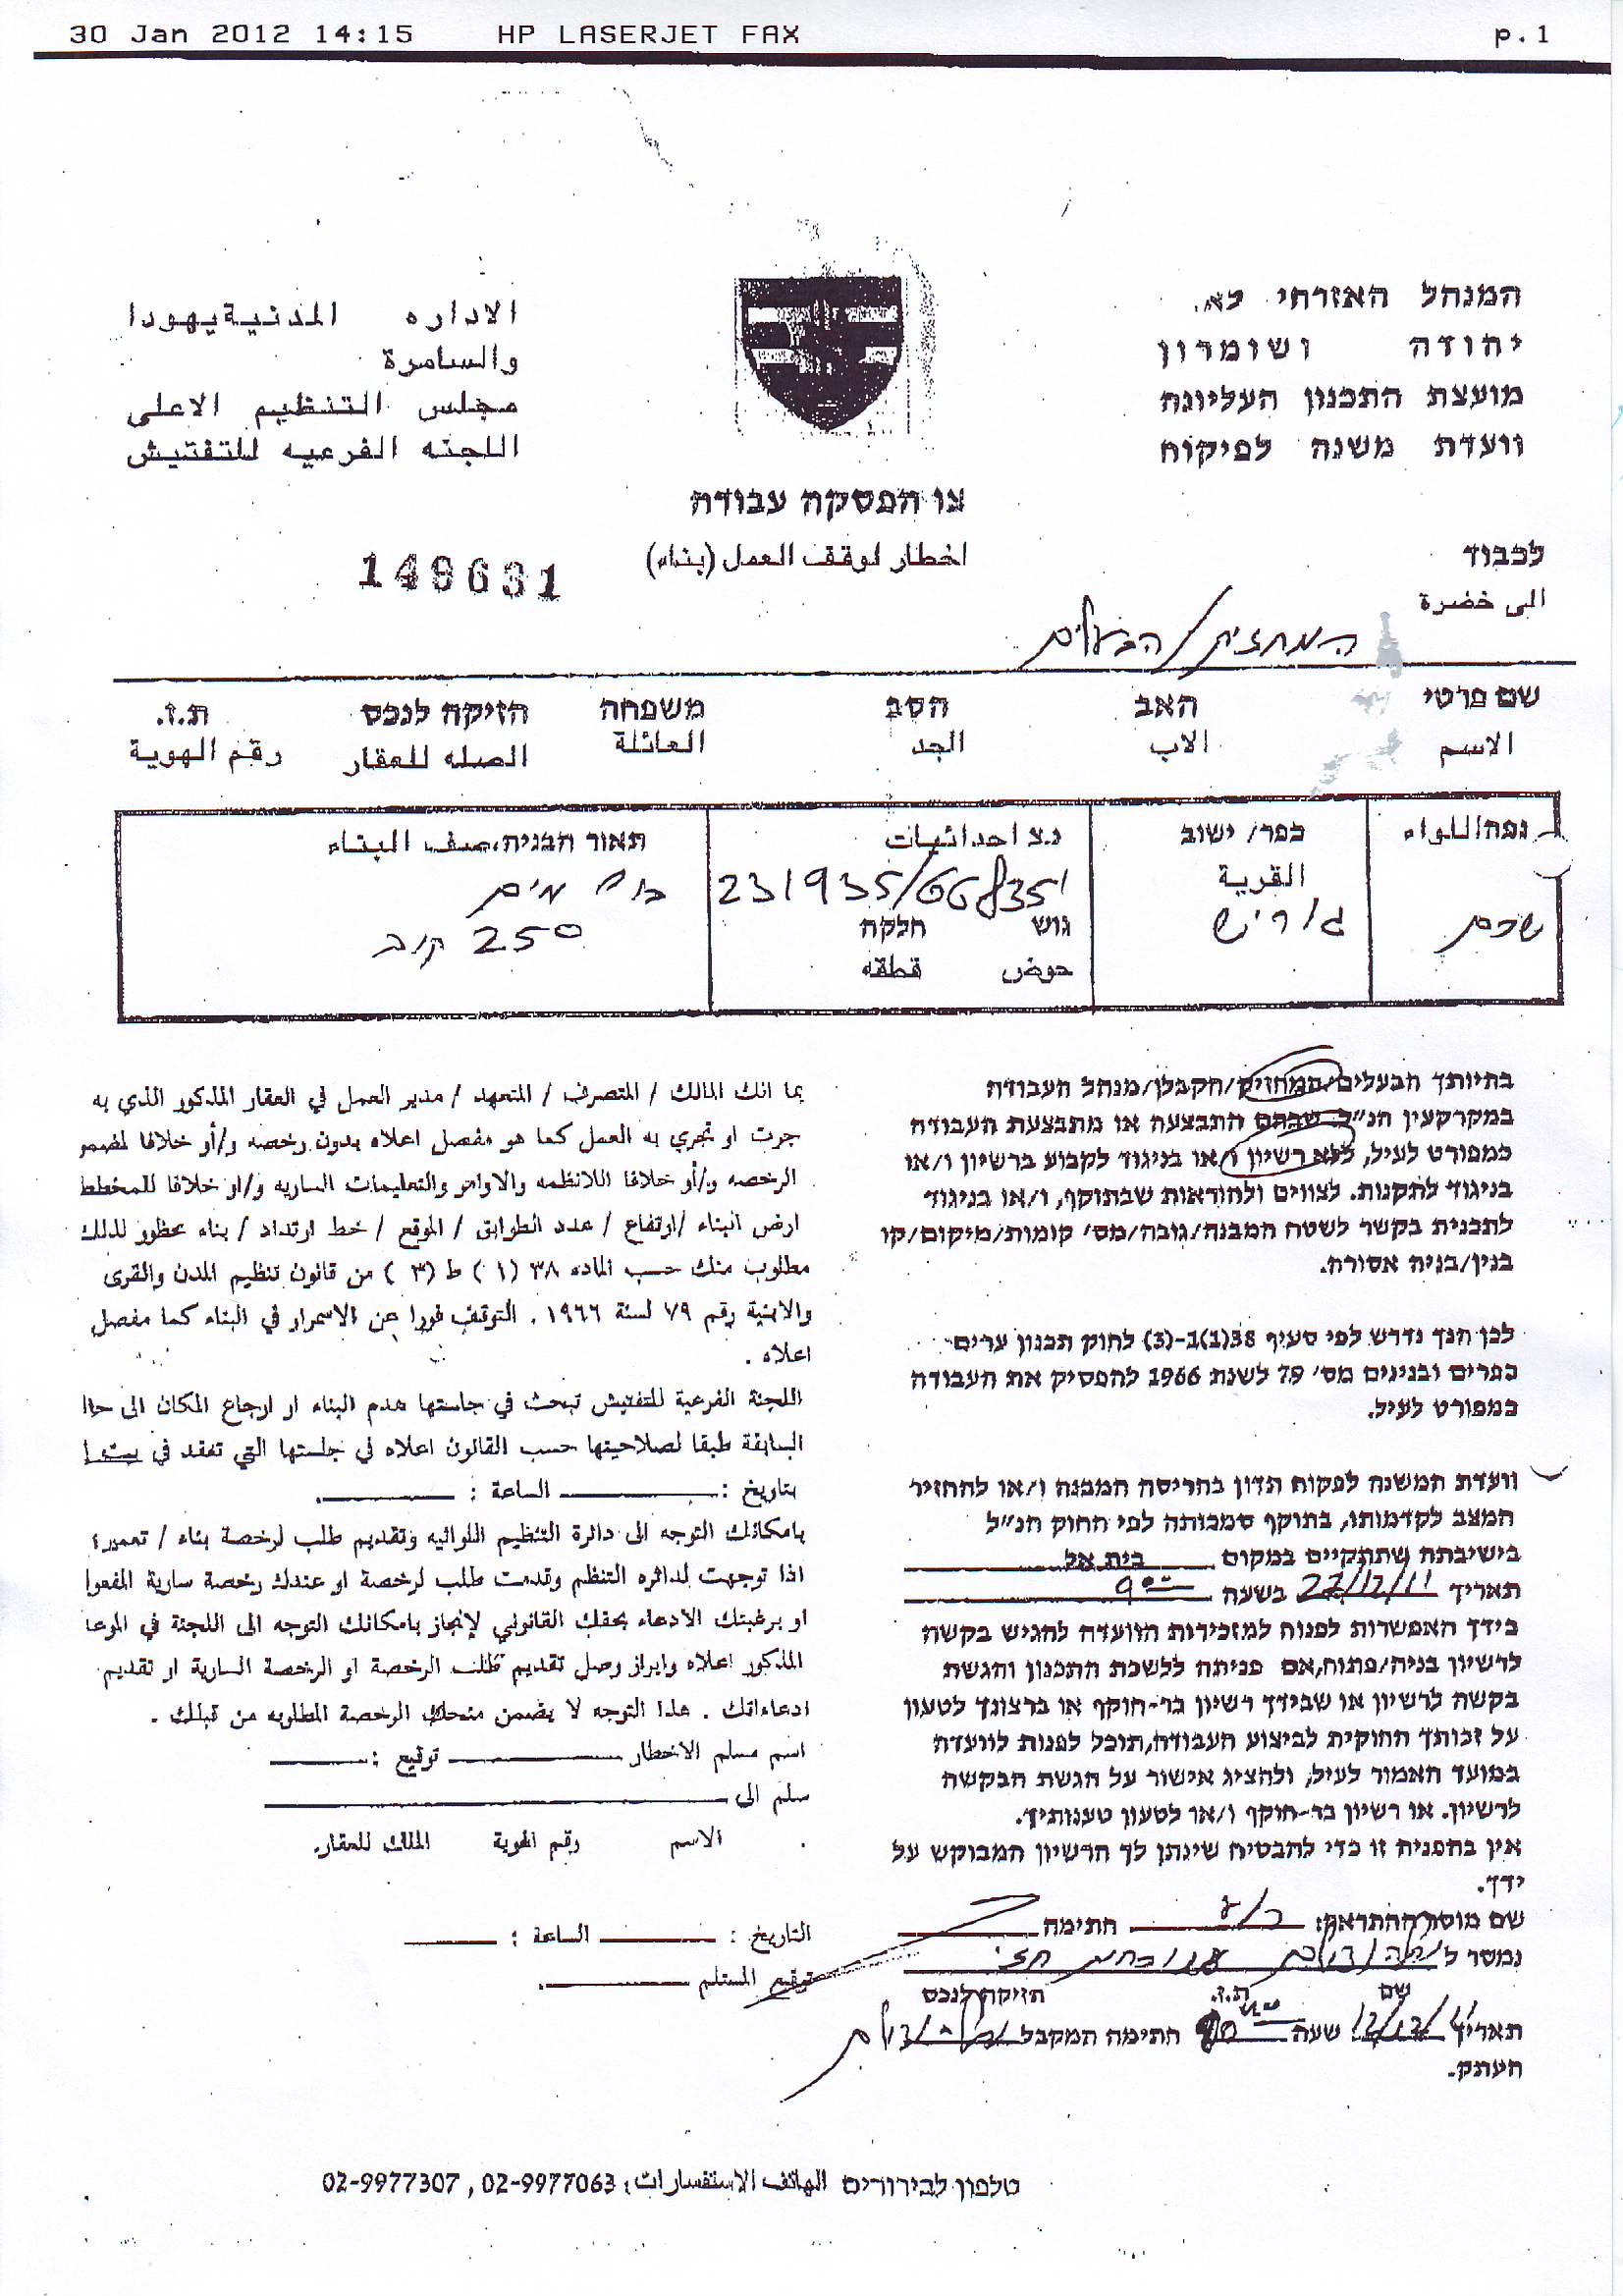 30 Jan 2012 14:15 HP LASERJET FAX p.1
המנהל האזרחי
יהודה ושומרון
מועצת התכנון העליונה
וועדת משנה לפיקוח
الاداره المدنية يهودا
والسامرة
مجلس التنظيم الاعلى
اللجنه الفرعيه للتفتيش
צו הפסקה עבודה
اخطار لوقف العمل (بناء)
לכבוד
الى خضرة
המחזיק/הבעלים
שם פרטי האב הסב משפחה הזיקה לנכס ת.ז.
الاسم الاب الجد العائلة الصله للعقار رقم الهوية
נפה اللواء
שכם
כפר/ ישוב
القرية
ג'וריש
נ.צ احداثيات
231935/66835
גוש חלקה
حوض قطعه
תאור הבניה، صف البناء
מים
250 קוב
בהיותך הבעלים/המחזיק/הקבלן/מנהל העבודה
במקרקעין הנ"ל שבהם התבצעה או מתבצעת העבודה
כמפורט לעיל, ללא רשיון ו/או בניגוד לקבוע ברשיון ו/או
בניגוד לתקנות. לצווים ולהוראות שבתוקף, ו/או בניגוד
לתכנית בקשר לשטח המבנה/גובה/מס' קומות/מיקום/קו
בנין/בניה אסורה.
לכן הנך נדרש לפי סעיף 38(1)1-(3) לחוק תכנון ערים
כפרים ובנינים מס' 79 לשנת 1966 להפסיק את העבודה
כמפורט לעיל.
וועדת המשנה לפקוח תדון בהריסה המבנה ו/או להחזיר
המצב לקדמותו, בתוקף סמכותה לפי החוק הנ"ל
בישיבתה שתתקיים במקום בית אל
תאריך 27/12/11 בשעה 9:00
בידך האפשרות לפנות למזכירות הוועדה להגיש בקשה
לרשיון בניה/פתוח,אם פניתה ללשכת התכנון והגשת
בקשה לרשיון או שבידך רשיון בר-חוקף או ברצונך לטעון
על זכותך החוקית לביצוע העבודה,תוכל לפנות לוועדה
במועד האמור לעיל, ולהציג אישור על הגשת הבקשה
לרשיון. או רשיון בר-חוקף ו/או לטעון טענותיך.
אין בהפניה זו כדי להבטיח שינתן לך הרשיון המבוקש על
ידך.
שם מוסר ההתראה: חתימה
נמסר ל
שם ת.ז. הזיקה לנכס
תאריך 12/12/11 שעה חתימה המקבל
העתק.
بما انك المالك / المتصرف / المتعهد / مدير العمل في العقار المذكور الذي به
جرت او تجري به العمل كما هو مفصل اعلاه بدون رخصه و/أو خلافا لمضمو
الرخصه و/أو خلافا اللانظمه والاوامر والتعليمات الساريه و/او خلافا للمخطط
ارض البناء /ارتفاع / عدد الطوابق / الموقع / خط ارتداد / بناء محظور لذلك
مطلوب منك حسب الماده ٣٨ (١) ط (٣) من قانون تنظيم المدن والقرى
والابنية رقم ٧٩ لسنة ١٩٦٦ . التوقف فورا عن الاسمرار في البناء كما مفصل
اعلاه .
اللجنة الفرعية للتفتيش تبحث في جاستها هدم البناء ار ارجاع المكان الى حاا
السابقة طبقا لصلاحيتها حسب القانون اعلاه في جلستها التي تعقد في بيت ا
بتاريخ : الساعة :
بامكانك التوجه الى دائرة التنظيم اللوائيه وتقديم طلب لرخصة بناء / تعمير؛
اذا توجهت لدائره التنظم وقدمت طلب لرخصة او عندك رخصة سارية المفعوا
او برغبتك الادعاء بحقك القانوني لإنجاز بامكانك التوجه الى اللجنة في الموعا
المذكور اعلاه وابراز وصل تقديم طلب الرخصة او الرخصة السارية او تقديم
ادعاءاتك . هذا التوجه لا يضمن منحك الرخصة المطلوبه من قبلك .
اسم مسلم الاخطار توقيع :
سلم الى
الاسم رقم الهوية المللك للعقار.
التاريخ : الساعة :
توقيع المستلم
טלפון לבירורים الهاتف الاستفسارات: 02-9977063 , 02-9977307